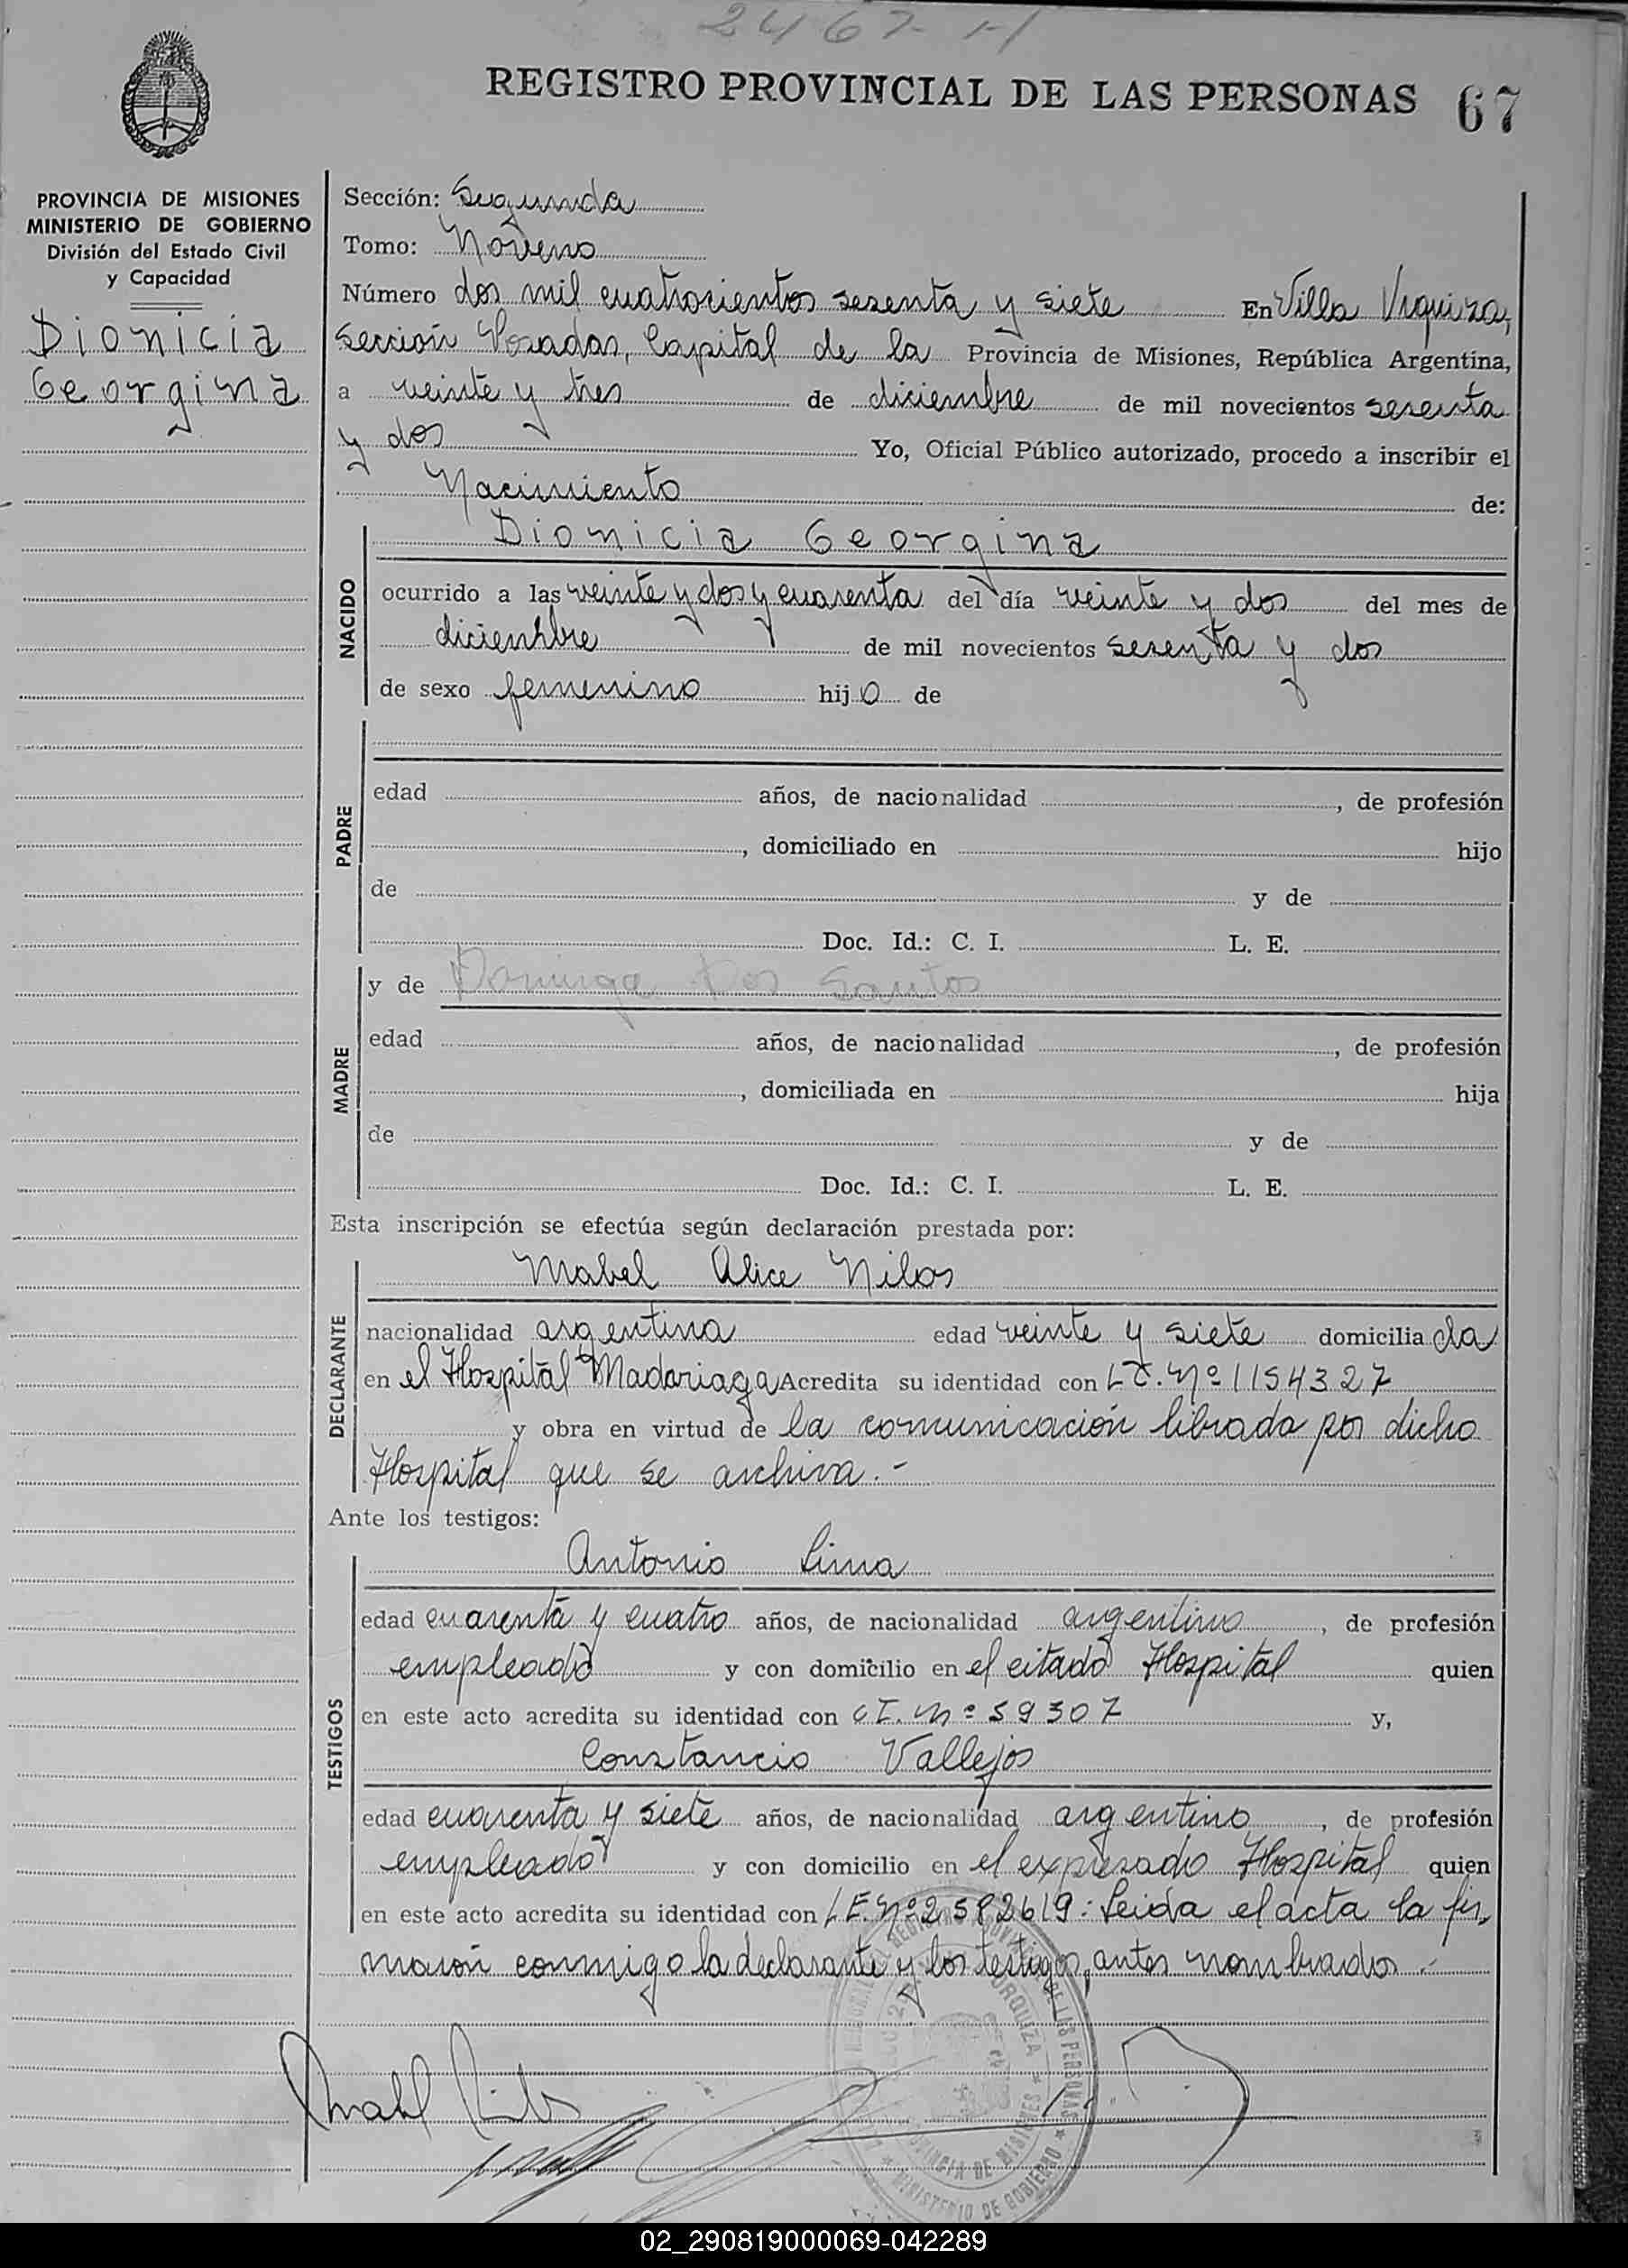 2467-1-1
REGISTRO PROVINCIAL DE LAS PERSONAS 67
PROVINCIA DE MISIONES
MINISTERIO DE GOBIERNO
División del Estado Civil
y Capacidad
Dionicia
Georgina
Sección: Segunda
Tomo: Noveno
Número dos mil cuatrocientos sesenta y siete En Villa Urquiza,
Sección Posadas, Capital de la Provincia de Misiones, República Argentina,
a veinte y tres de diciembre de mil novecientos sesenta
y dos Yo, Oficial Público autorizado, procedo a inscribir el
Nacimiento de:
NACIDO
Dionicia Georgina
ocurrido a las veinte y dos y cuarenta del día veinte y dos del mes de
diciembre de mil novecientos sesenta y dos
de sexo femenino hija de
PADRE
edad años, de nacionalidad , de profesión
, domiciliado en hijo
de y de
Doc. Id.: C. I. L. E.
MADRE
y de Dominga Dos Santos
edad años, de nacionalidad , de profesión
, domiciliada en hija
de y de
Doc. Id.: C. I. L. E.
Esta inscripción se efectúa según declaración prestada por:
DECLARANTE
Mabel Alice Nilos
nacionalidad argentina edad veinte y siete domiciliada
en el Hospital Madariaga Acredita su identidad con L.C. Nº 1154327
y obra en virtud de la comunicación librada por dicho
Hospital que se archiva.-
Ante los testigos:
TESTIGOS
Antonio Lima
edad cuarenta y cuatro años, de nacionalidad argentino, de profesión
empleado y con domicilio en el citado Hospital quien
en este acto acredita su identidad con C.I. Nº 59307 y,
Constancio Vallejos
edad cuarenta y siete años, de nacionalidad argentino, de profesión
empleado y con domicilio en el expresado Hospital quien
en este acto acredita su identidad con L.E. Nº 2582619: Leida el acta la fir-
maron conmigo la declarante y los testigos, antes nombrados.-
PROVINCIA DE MISIONES
MINISTERIO DE GOBIERNO
02_290819000069-042289